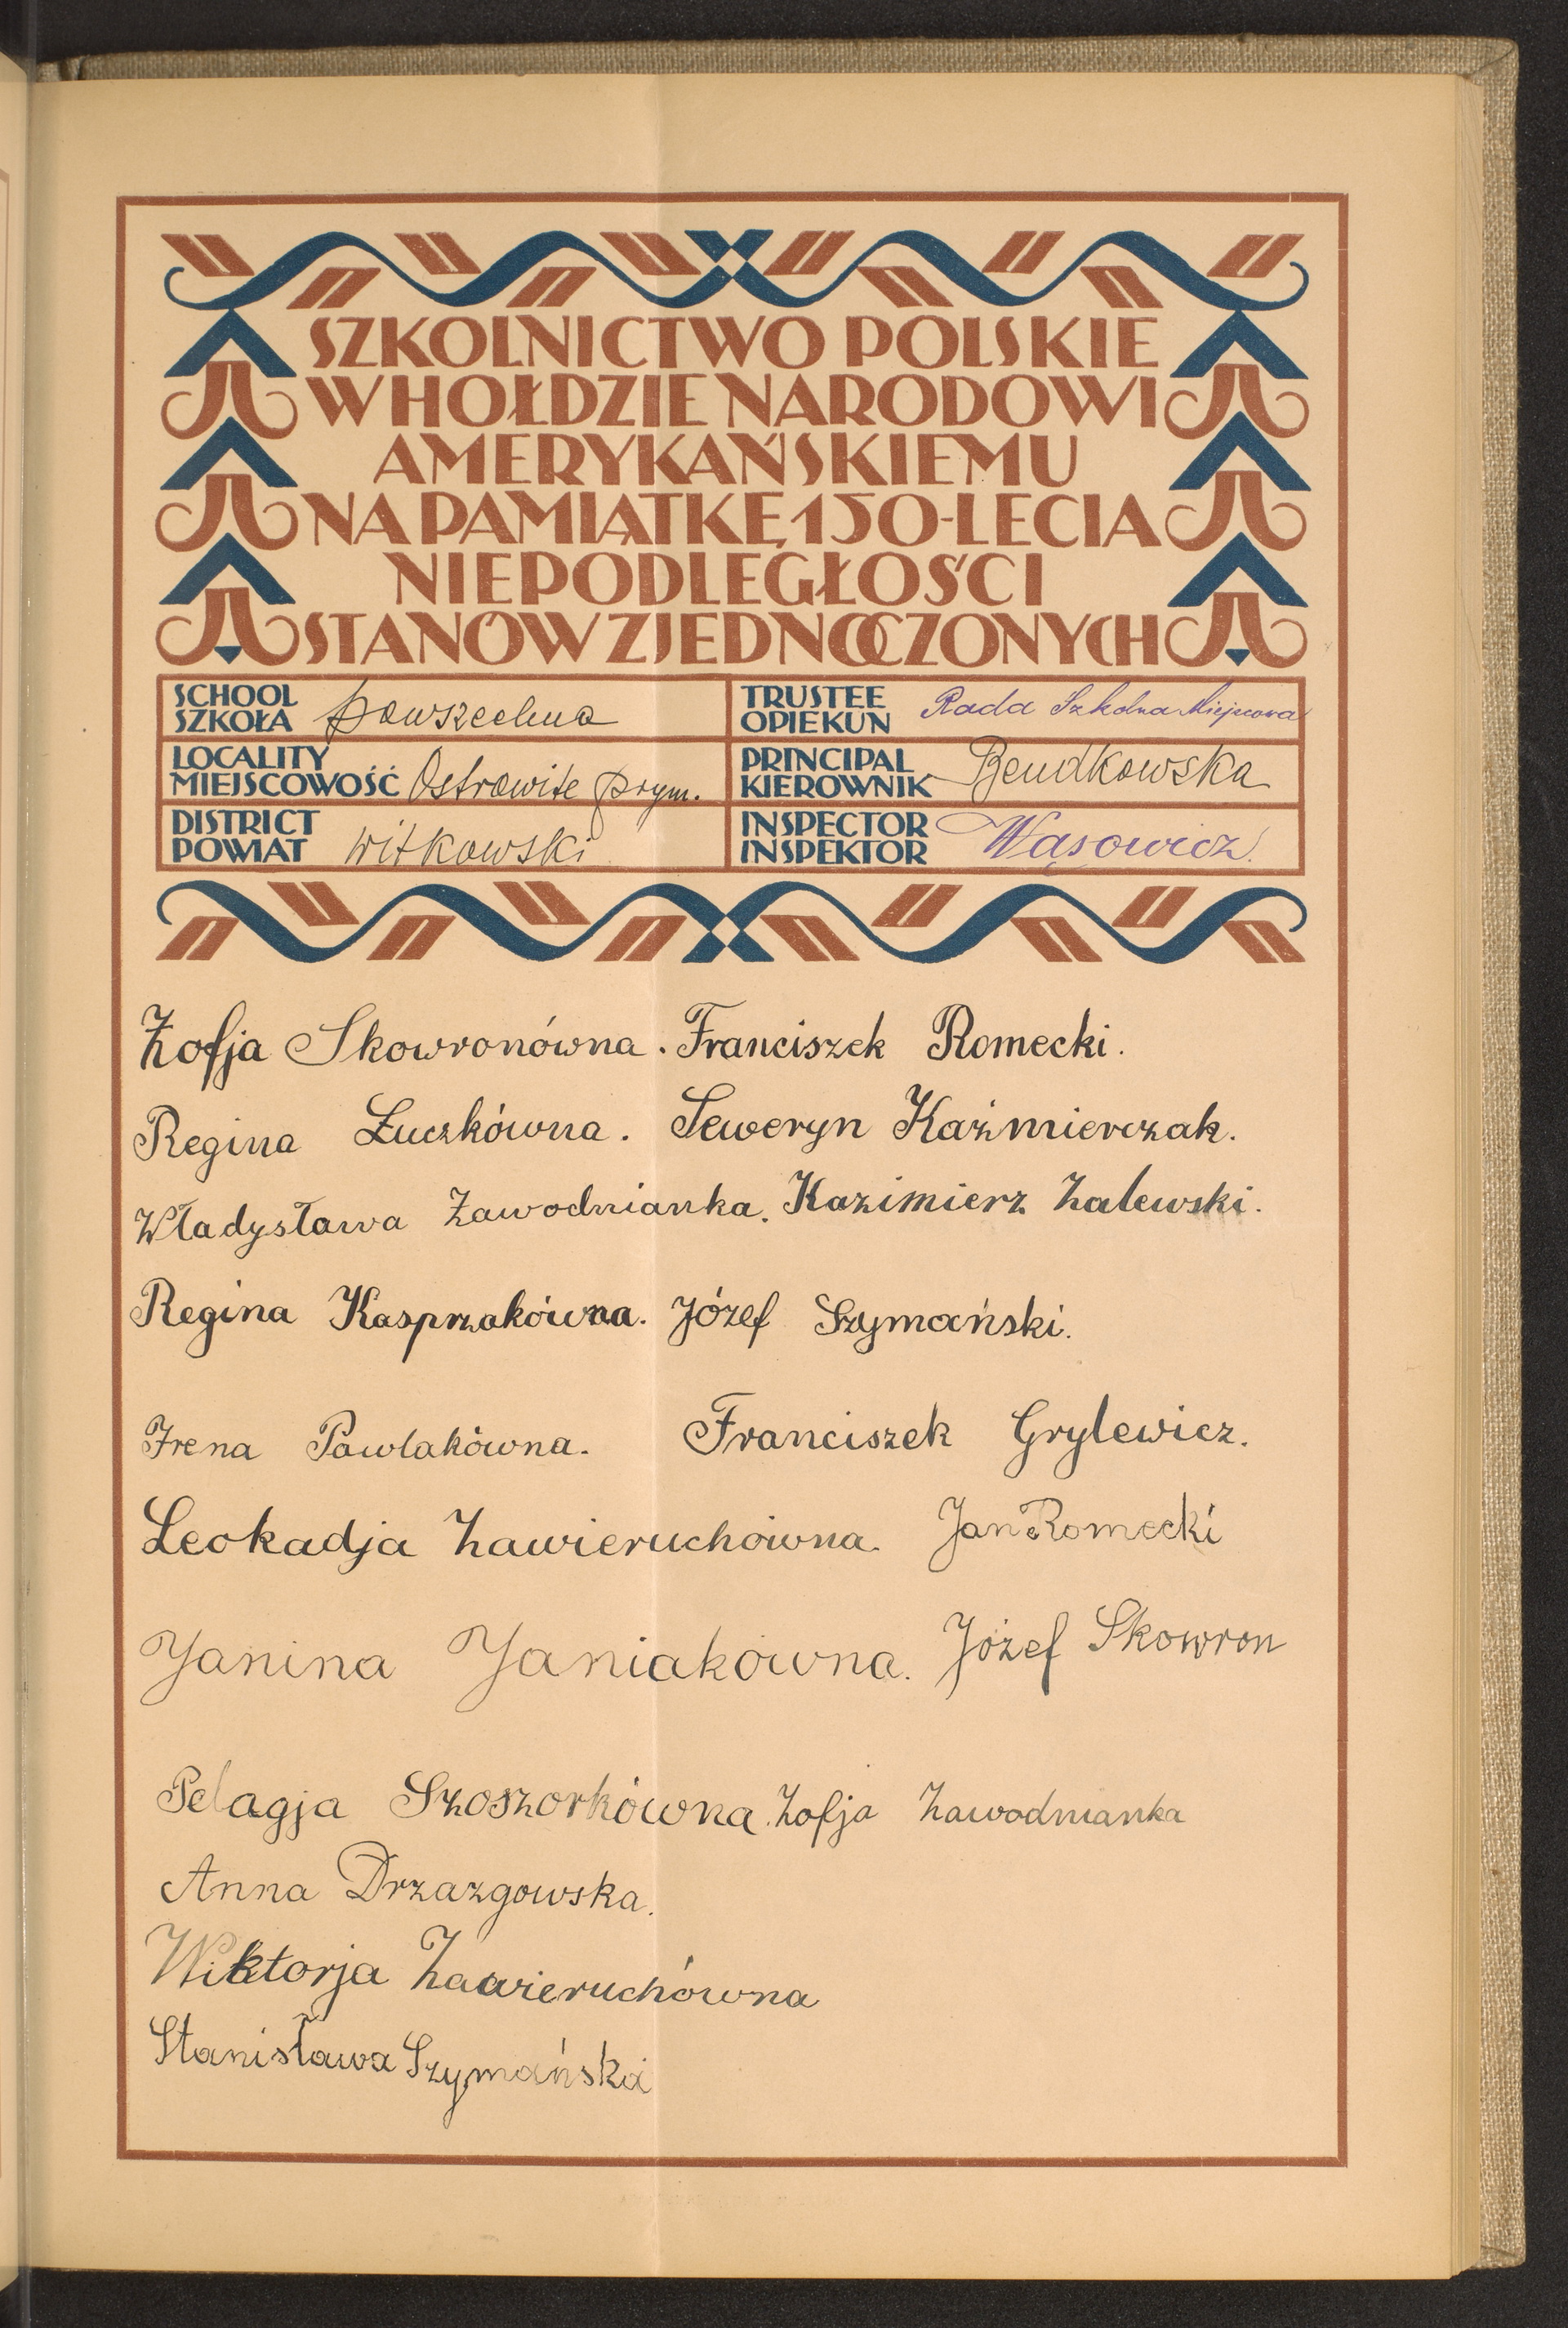 SZKOLNICTWO POLSKIE
W HOŁDZIE NARODOWI
AMERYKAŃSKIEMU
NA PAMIĄTKĘ 150-LECIA
NIEPODLEGŁOŚCI
STANÓW ZJEDNOCZONYCH
SCHOOL
SZKOŁA powszechna
TRUSTEE
OPIEKUN Rada Szkolna Miejscowa
LOCALITY
MIEJSCOWOŚĆ Ostrowite prym.
PRINCIPAL
KIEROWNIK Bendkowska
DISTRICT
POWIAT witkowski
INSPECTOR
INSPEKTOR Wąsowicz.
Zofja Skowronówna. Franciszek Romecki.
Regina Łuczkówna. Seweryn Kaźmierczak.
Władysława Zawodnianka. Kazimierz Zalewski.
Regina Kasprzakówna. Józef Szymański.
Irena Pawlakówna. Franciszek Grylewicz.
Leokadja Zawieruchówna. Jan Romecki
Janina Janiakówna. Józef Skowron
Pelagja Szoszorkówna. Zofja Zawodnianka
Anna Drzazgowska.
Wiktorja Zawieruchówna
Stanisława Szymańska